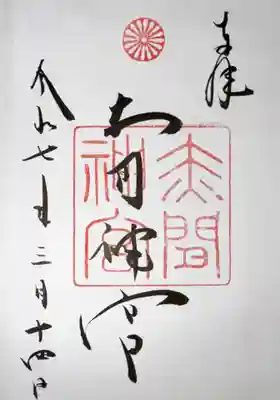 奉拝
赤間神宮
赤間神宮
令和七年三月十四日